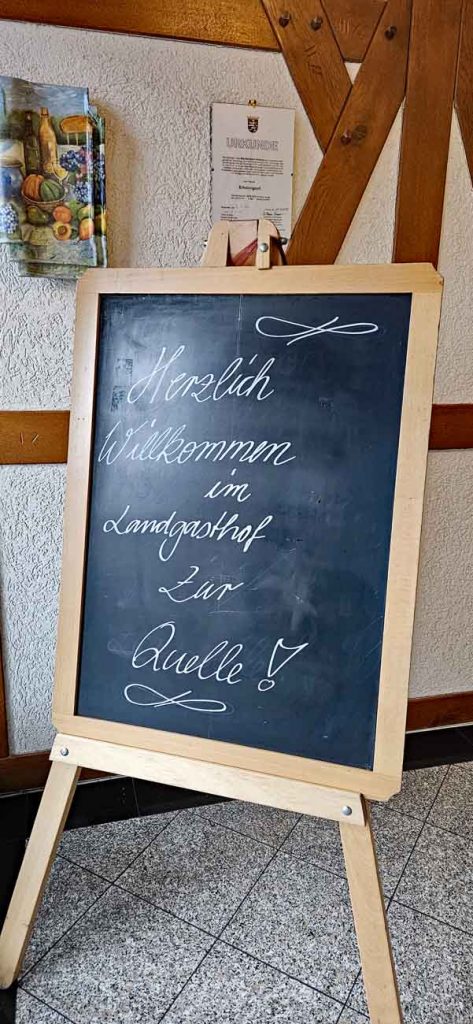 URKUNDE
Herzlich
Willkommen
im
Landgasthof
Zur
Quelle!